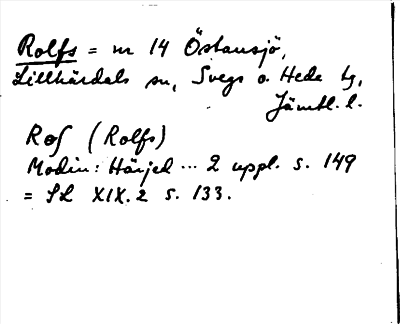 Rolfs = nr 14 Östansjö,
Lillhärdals sn, Svegs o. Hede tg,
Jämtl. l.
Rof (Rolfs)
Modin: Härjed ... 2 uppl. s. 149
= SL XIX.2 s. 133.